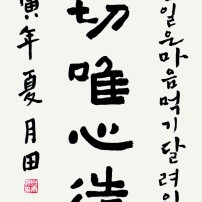 일은마음먹기달려
切唯心造
寅年夏月田